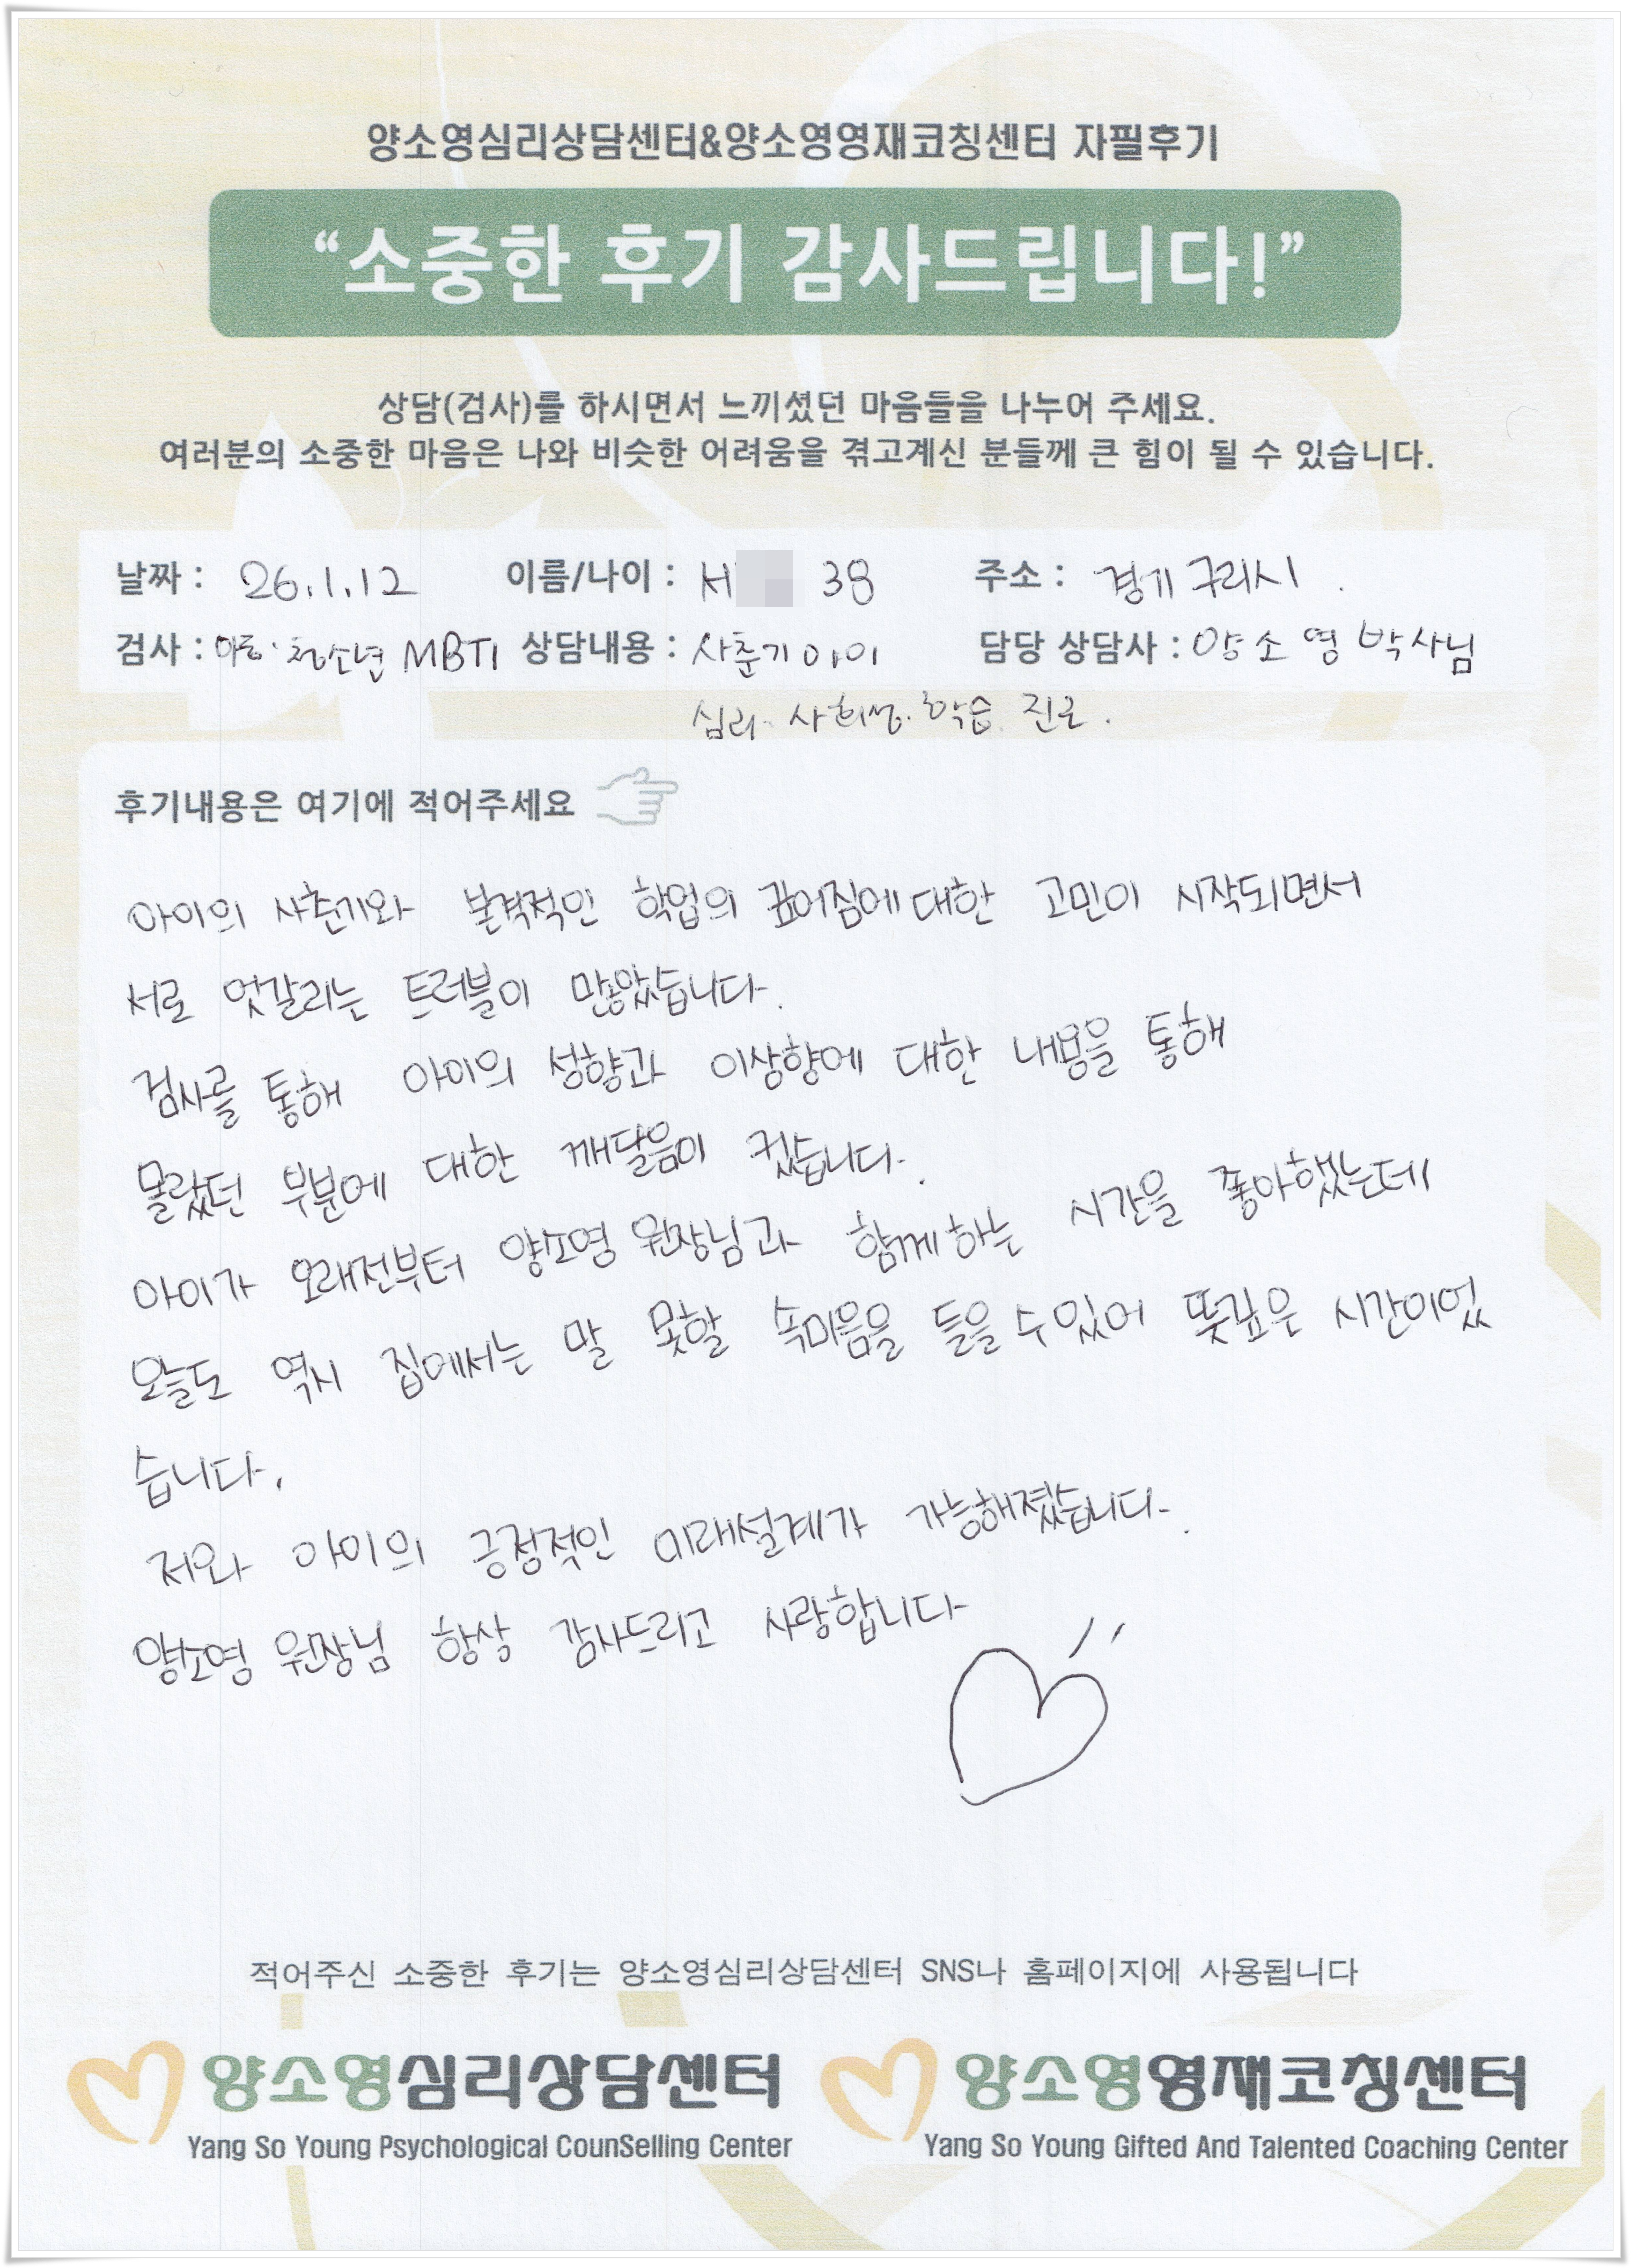 양소영심리상담센터&양소영영재코칭센터 자필후기
“소중한 후기 감사드립니다!”
상담(검사)를 하시면서 느끼셨던 마음들을 나누어 주세요.
여러분의 소중한 마음은 나와 비슷한 어려움을 겪고계신 분들께 큰 힘이 될 수 있습니다.
날짜 : 26.1.12 이름/나이 : 38 주소 : 경기 구리시.
검사 : 아동·청소년 MBTI 상담내용 : 사춘기 아이 담당 상담사 : 양소영 박사님
심리. 사회성. 학습. 진로.
후기내용은 여기에 적어주세요
아이의 사춘기와 본격적인 학업의 깊어짐에 대한 고민이 시작되면서
서로 엇갈리는 트러블이 많았습니다.
검사를 통해 아이의 성향과 이상향에 대한 내용을 통해
몰랐던 부분에 대한 깨달음이 컸습니다.
아이가 오래전부터 양소영 원장님과 함께하는 시간을 좋아했는데
오늘도 역시 집에서는 말 못할 속마음을 들을 수 있어 뜻깊은 시간이었
습니다.
저와 아이의 긍정적인 미래설계가 가능해졌습니다.
양소영 원장님 항상 감사드리고 사랑합니다
적어주신 소중한 후기는 양소영심리상담센터 SNS나 홈페이지에 사용됩니다
양소영심리상담센터 양소영영재코칭센터
Yang So Young Psychological CounSelling Center Yang So Young Gifted And Talented Coaching Center